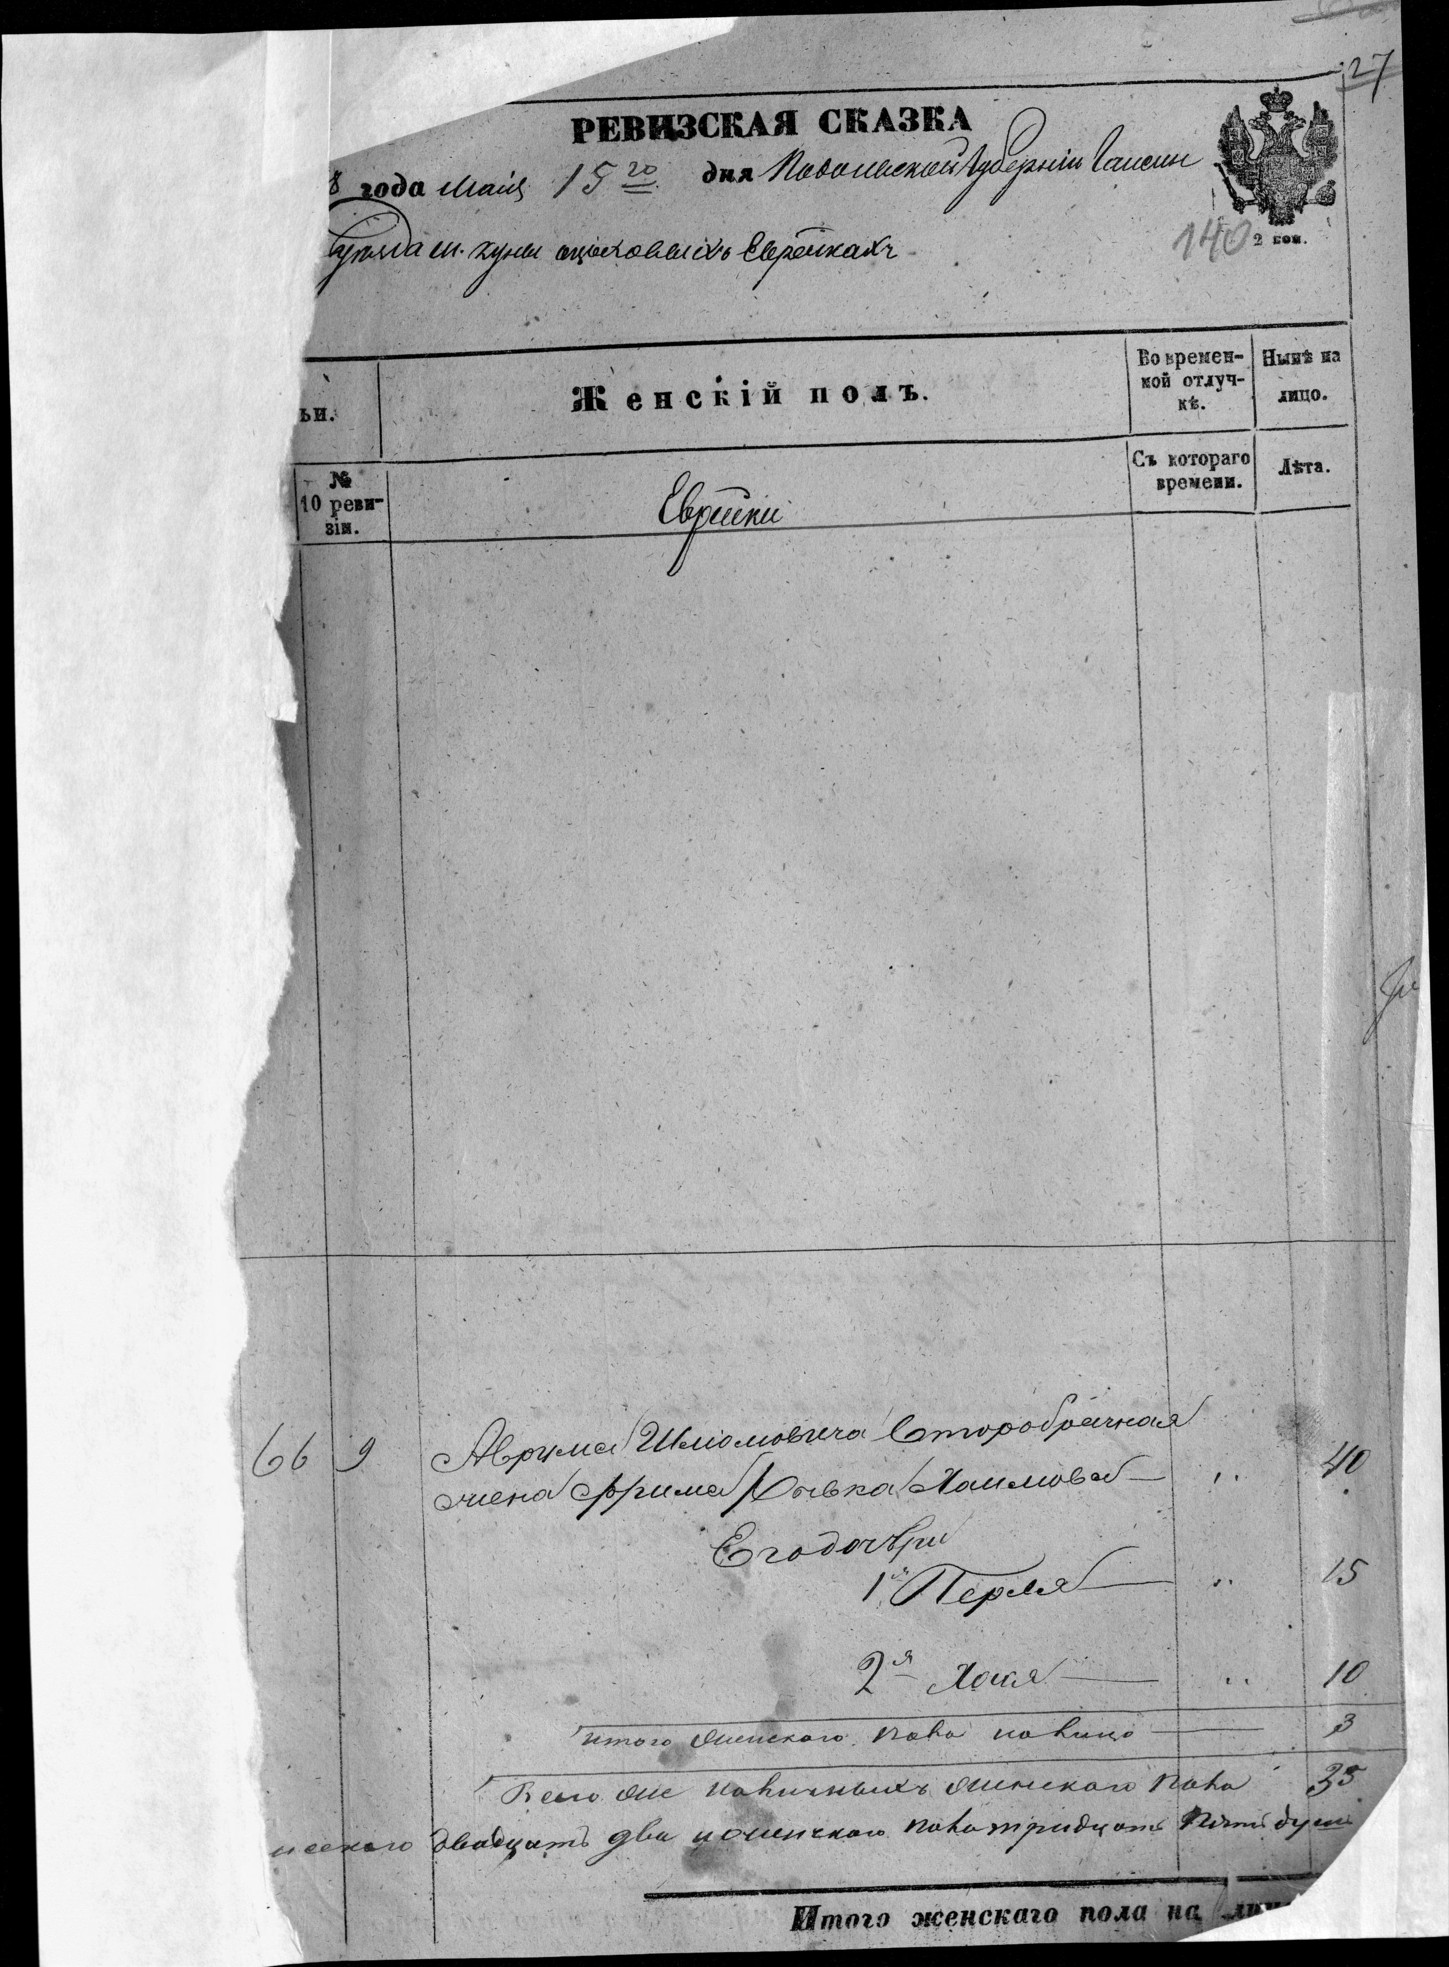 27
РЕВИЗСКАЯ СКАЗКА
8 года Маія 15 го дня Подольской Губерніи Гайсин
уѣзда м. Куны цеховыхъ Еврейкахъ
140
2 коп.
ьи.
Женскій полъ.
Во времен-
ной отлуч-
кѣ.
Ныпѣ на
лицо.
№
10 реви-
зіи.
Еврейки
Съ котораго
времени.
Лѣта.
66 9 Аврума Шліомовича Второбрачная
жена Фрима Рывка Хаимова 40
Его дочѣри
1я Перля 15
2я Хая 10
Итого женскаго пола на лицо 3
Всего же наличныхъ женскаго пола 35
двадцать два и женскаго пола тридцать пять душъ
Итого женскаго пола на лиц